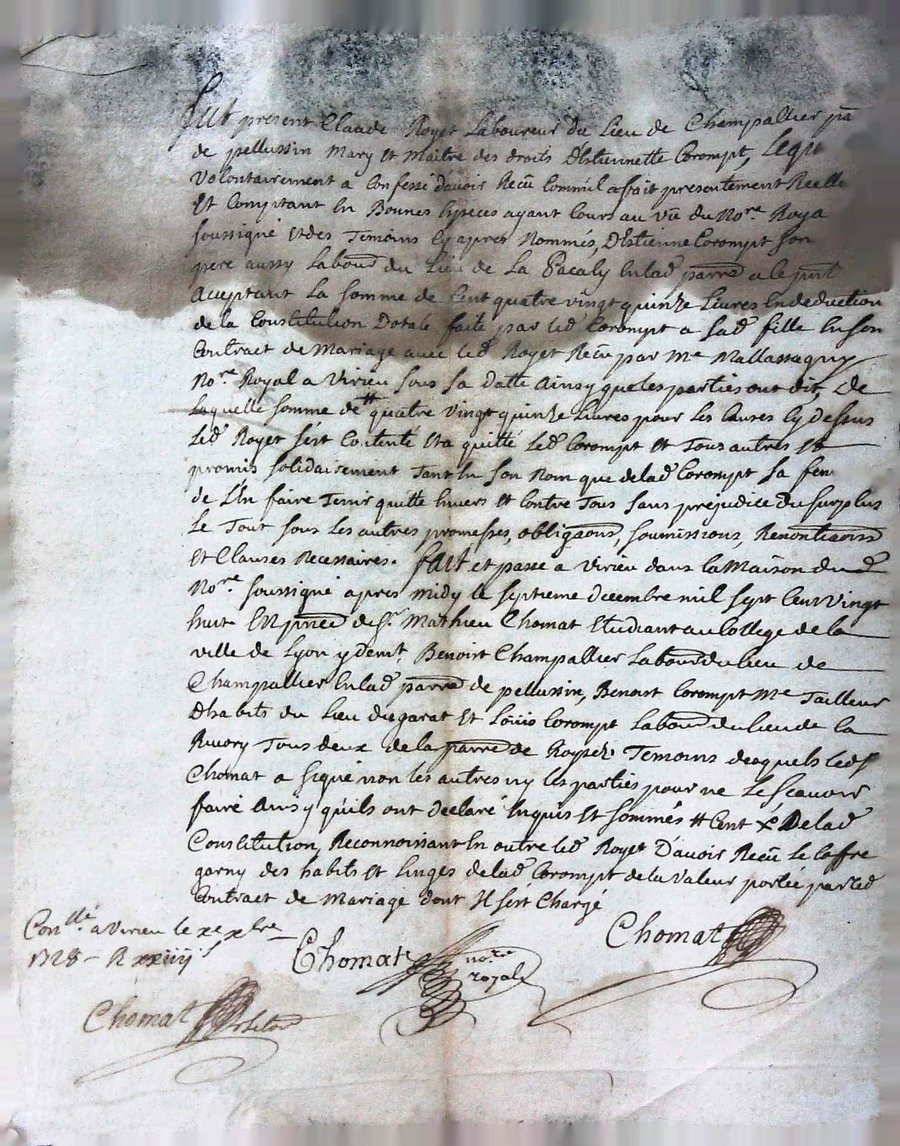 Fut present Claude Royet Laboureur du Lieu de Champallier prã
de pellussin Mary et Maitre des droits D'Estiennette Corompt, Lequ
Volontairement a Confessé d'avoir Reçu Comm'il a fait presentement Reelle
Et Comptant En Bonnes Especes ayant Cours au vû du No.re Roya
soussigné Et des Temoins Cy apres Nommés, D'Estienne Corompt son
pere aussy Labour du Lieu de La Pacaly En lad parre a ce pnt
Acceptant La somme de Cent quatre vingt quinze Livres En deduction
de la Constitution Dotale faite par led Corompt a Sad fille En son
Contract de Mariage avec led Royet Reçu par Me Mallassagny
No.re Royal a Virieu sous sa datte Ainsy que les parties ont dit, De
Laquelle somme de # quatre Vingt quinze Livres pour les Causes Cy dessus
Led Royet s'est Contenté Et a quitté Led Corompt Et Tous autres Et
promis solidairement Tant En son Nom que de lad Corompt Sa fem
de L'En faire Tenir quitte Envers Et Contre Tous sans prejudice du surplus
Le Tout sous Les autres promesses, obligaons, soumissions, Renontiaons
Et Clauses Necessaires. fait et passé a Virieu dans la Maison dud
No.re soussigné apres midy le septieme decembre mil sept Cent Vingt
huit En pnce de Sr Mathieu Chomat Etudiant au College de la
ville de Lyon y demt, Benoist Champallier Labour du lieu de
Champallier En lad parre de pellussin, Benoist Corompt Me Tailleur
D'habits du Lieu du garat Et Louis Corompt Labour du lieu de la
Rivory Tous deux de la parre de Roysez Temoins desquels led Sr
Chomat a signé non les autres ny les parties pour ne Le Scavoir
faire Ainsy qu'ils ont declaré Enquis Et sommés # Cent X De lad
Constitution, Reconnoissant En outre led Royet D'avoir Reçu Le Coffre
garny des habits Et Linges de lad Corompt de la Valeur portée par led
Contract de Mariage dont Il s'est Chargé
Chomat
Chomat no.re royal
Con.llé a Virieu le xe xbre
1728 - R xxiiij s
Chomat